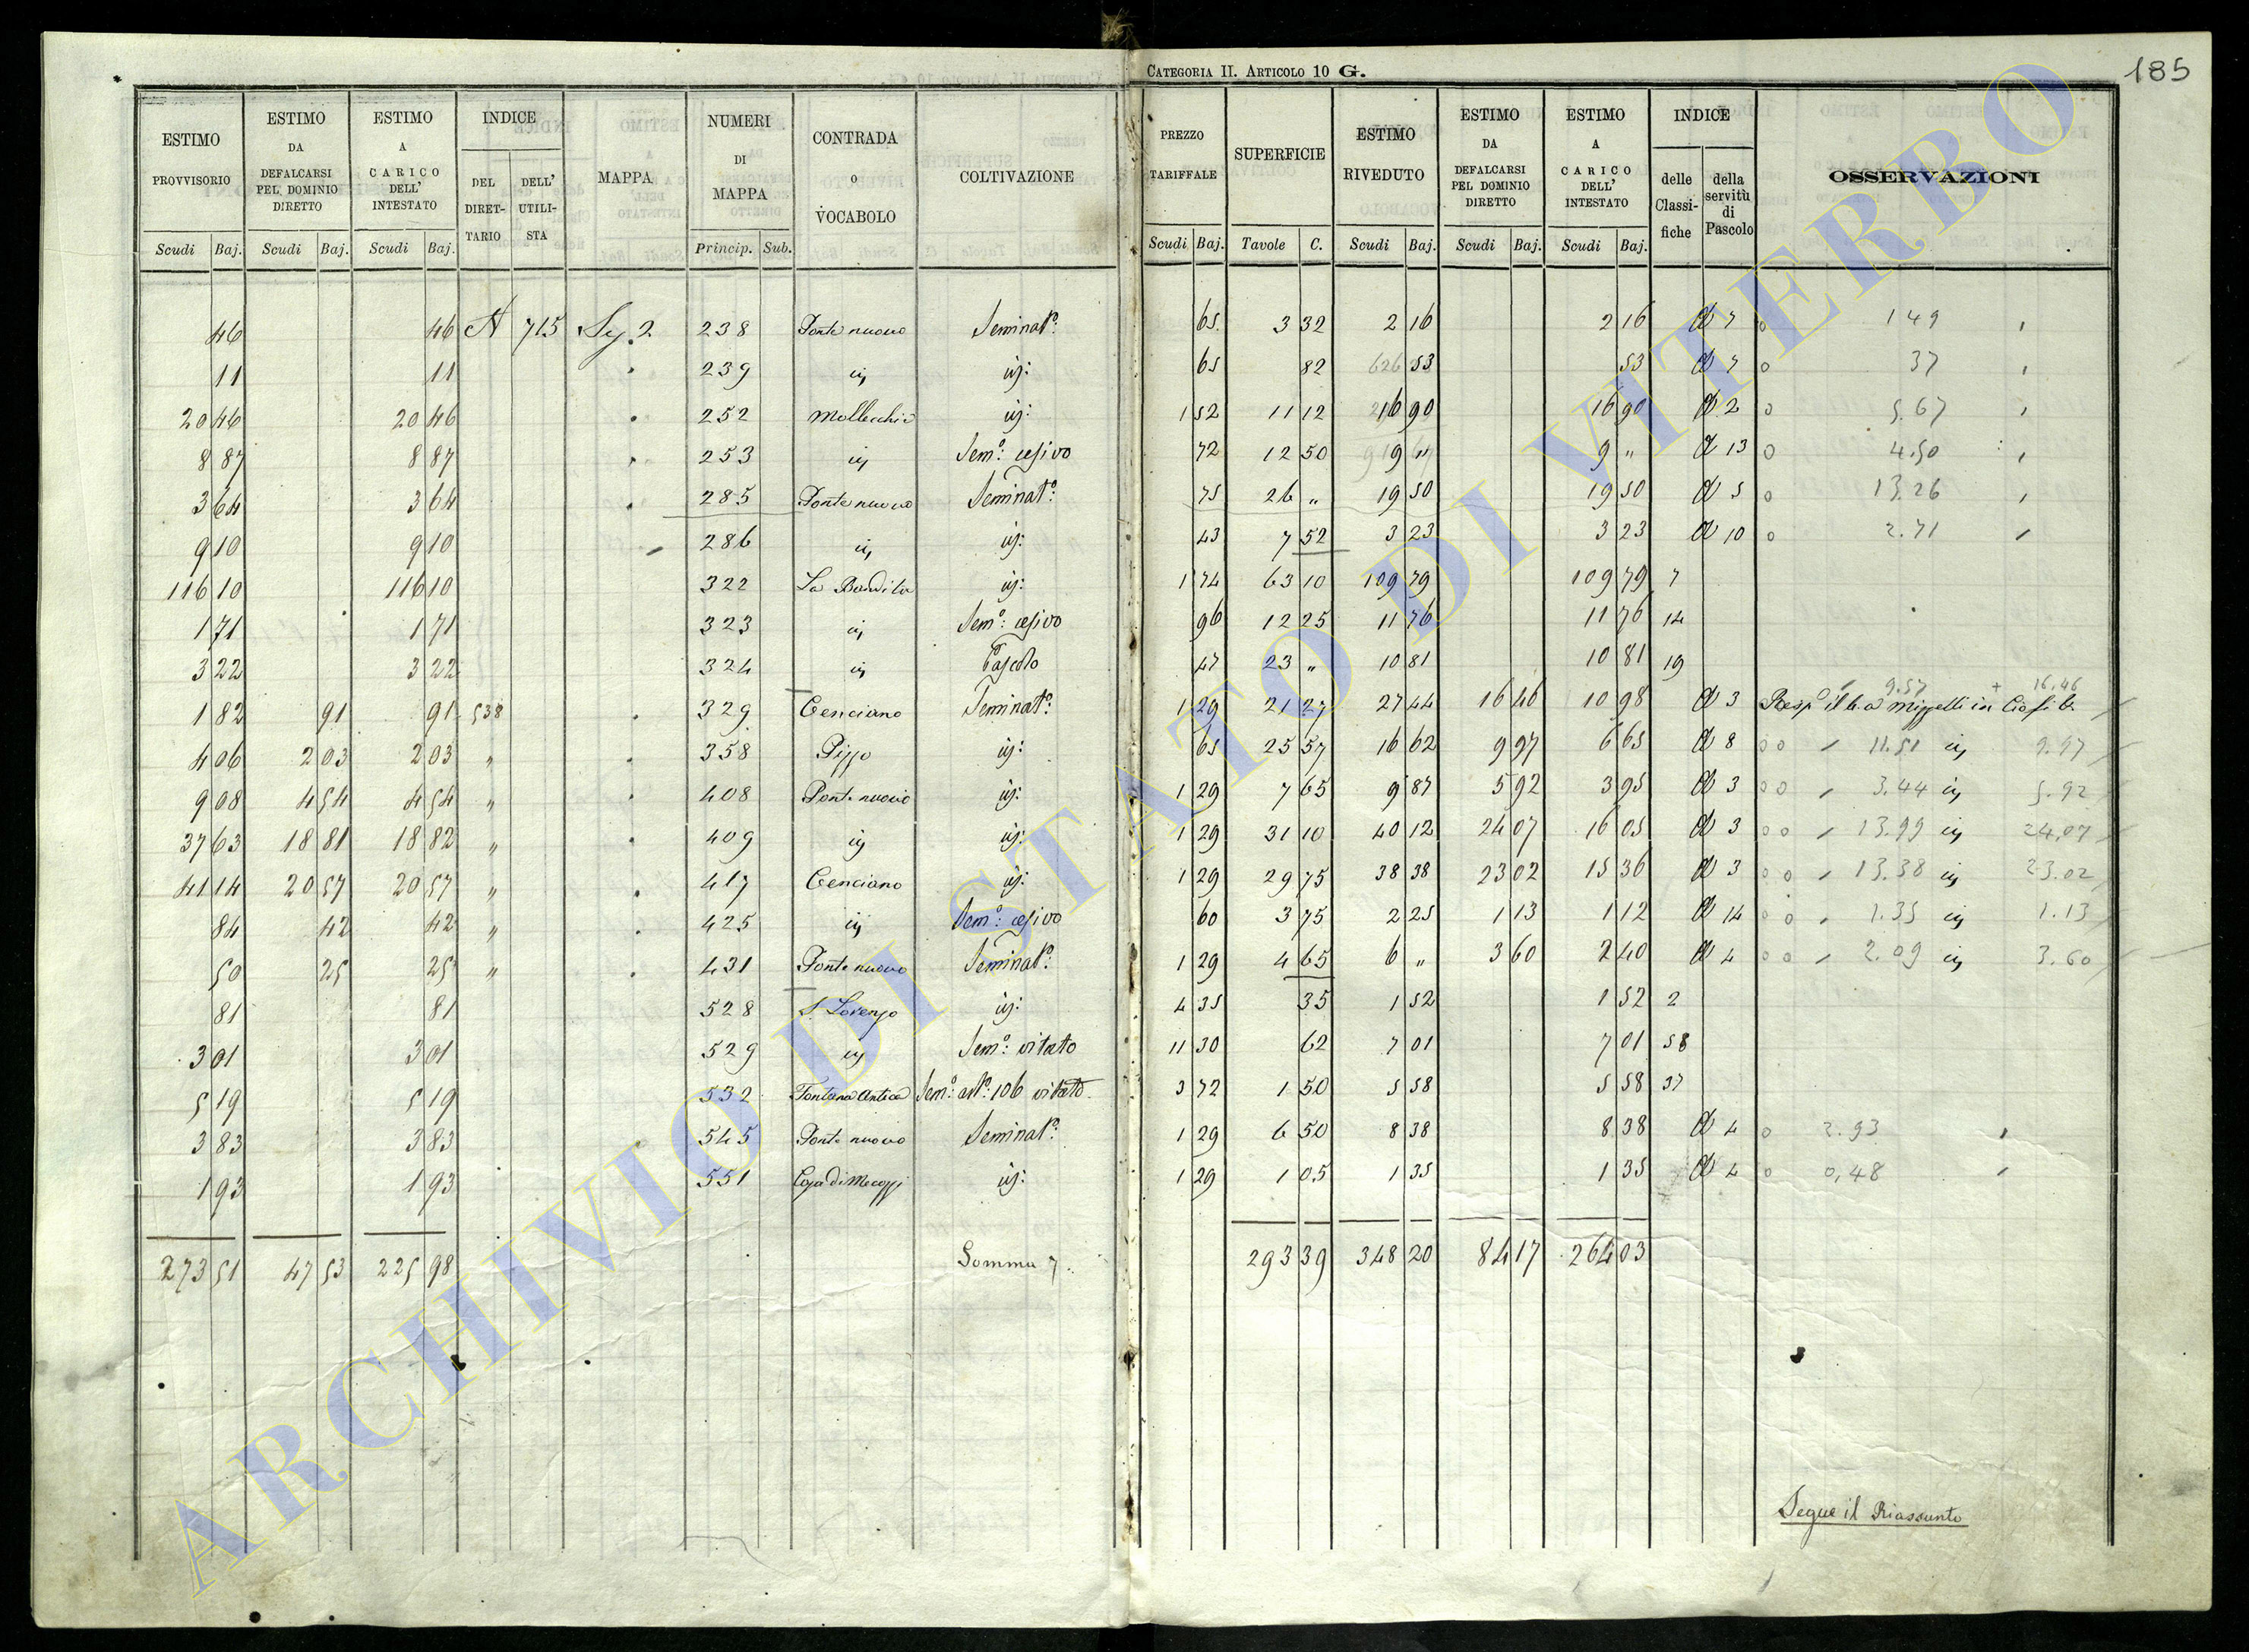 CATEGORIA II. ARTICOLO 10 G.
185
ESTIMO PROVVISORIO Scudi Baj.
ESTIMO DA DEFALCARSI PEL DOMINIO DIRETTO Scudi Baj.
ESTIMO A CARICO DELL' INTESTATO Scudi Baj.
INDICE DEL DIRETTARIO DELL' UTILISTA
MAPPA
NUMERI DI MAPPA Princip. Sub.
CONTRADA O VOCABOLO
COLTIVAZIONE
PREZZO TARIFFALE Scudi Baj.
SUPERFICIE Tavole C.
ESTIMO RIVEDUTO Scudi Baj.
ESTIMO DA DEFALCARSI PEL DOMINIO DIRETTO Scudi Baj.
ESTIMO A CARICO DELL' INTESTATO Scudi Baj.
INDICE delle Classifiche della servitù di Pascolo
OSSERVAZIONI
46 46 A 715 2 238 Ponte nuovo Seminato: 65 3 32 2 16 2 16 7 149
11 11 239 id id: 65 82 53 53 7 37
20 46 20 46 252 id: 1 52 11 12 16 90 16 90 2 5.67
8 87 8 87 253 id Semo: cesivo 72 12 50 9 " 9 " 13 4.50
3 64 3 64 285 Ponte nuovo Seminato: 75 26 " 19 50 19 50 5 13.26
9 10 9 10 286 id id: 43 7 52 3 23 3 23 10 2.71
116 10 116 10 322 La Bandita id: 1 74 63 10 109 79 109 79 7
1 71 1 71 323 id Semo: cesivo 96 12 25 11 76 11 76 14
3 22 3 22 324 id Pascolo 47 23 " 10 81 10 81 19
1 82 91 91 538 329 Cenciano Seminato: 1 29 21 27 27 44 16 46 10 98 3 9.57 + 16.46
4 06 2 03 2 03 " 358 Pizzo id: 65 25 57 16 62 9 97 6 65 8 11.51 id 9.97
9 08 4 54 4 54 " 408 Ponte nuovo id: 1 29 7 65 9 87 5 92 3 95 3 3.44 id 5.92
37 63 18 81 18 82 " 409 id id: 1 29 31 10 40 12 24 07 16 05 3 13.99 id 24.07
41 14 20 57 20 57 " 417 Cenciano id: 1 29 29 75 38 38 23 02 15 36 3 13.38 id 23.02
84 42 42 " 425 id Semo: cesivo 60 3 75 2 25 1 13 1 12 14 1.35 id 1.13
50 25 25 " 431 Ponte nuovo Seminato: 1 29 4 65 6 " 3 60 2 40 4 2.09 id 3.60
81 81 528 S. Lorenzo id: 4 35 35 1 52 1 52 2
3 01 3 01 529 id Semo: vitato 11 30 62 7 01 7 01 58
5 19 5 19 532 Fontana Antica Semo: 106 vitato 3 72 1 50 5 58 5 58 37
3 83 3 83 545 Ponte nuovo Seminato: 1 29 6 50 8 38 8 38 4 2.93
1 93 1 93 551 id: 1 29 1 05 1 35 1 35 4 0,48
273 51 47 53 225 98 Somma 293 39 348 20 84 17 264 03
Segue il Riassunto
ARCHIVIO DI STATO DI VITERBO